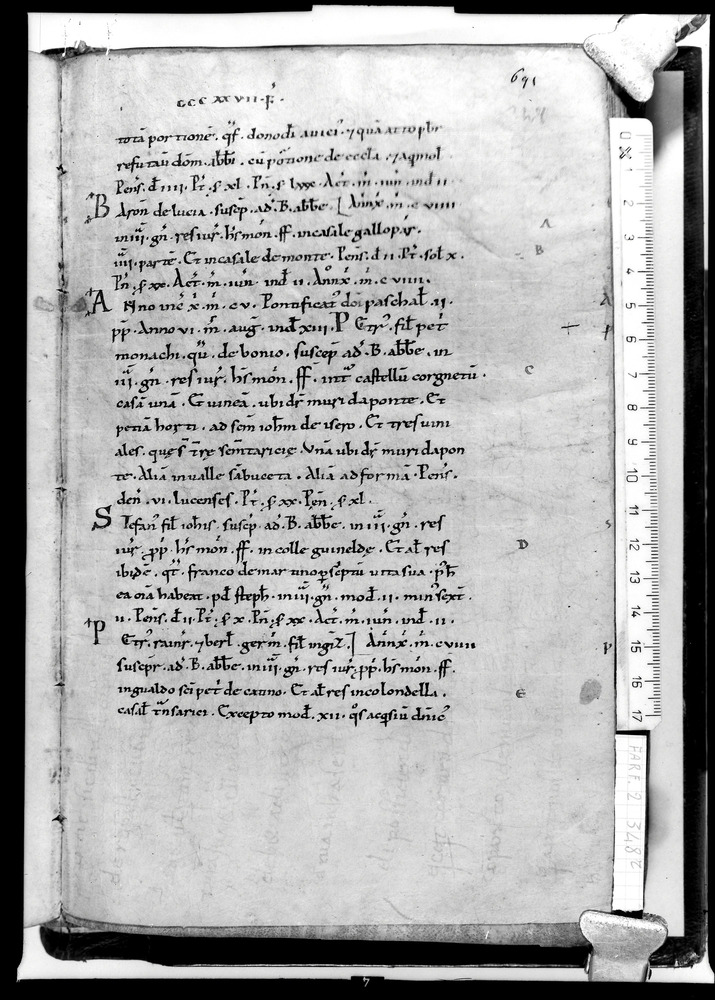 691
CCCXXVII·
totā portionē · qͣſ · donodī auict̄ · ⁊ quā attopbr̄
refutau dōm · abb̄i · cū poͬtione de eccl̄a · ⁊ aq̄mol
Penſ · d̄ IIII · Pt̄ · ſ · XL · Pn̄ · ſ · LXX · Act̄ · m̄ · iun̄ · ind̄ II
Baron̄ de lucia · suscep̄ · ad · B · abb̄e · [Ann̄ · x̄ · m̄ · C VIIII
in III · gn̄ · res iur̄ · hͥ mōn · ff · in casale gallopar̄ ·
IIII · partē · Et in casale de monte · Penſ · d̄ II · Pt̄ · sol̄ X ·
Pn̄ · ſ · XX · Act̄ · m̄ · iun̄ · ind̄ II · Ann̄ · x̄ · m̄ · C VIIII ·
Anno inc̄ x̄ · m̄ · C V · Pontificat̄ doi paschał · II ·
pp · Anno VI · m̄ · auḡ · ind̄ XIII · Petr̄ · fil̄ pet̄
monachi · qū · de bonio · suscep̄ ad · B · abb̄e · in
III · gn̄ · res iur̄ · hͥ mōn · ff · int̄ castellū corgnetū ·
casā unā · Et uineā · ubi dr̄ muri da ponte · Et
petiā horti · ad sc̄m ioh̄m de isero · Et tres uini
ales · que s̄ tr̄e sem̄taricie · Unā ubi dr̄ muri dapon
te · Aliā in ualle sābuceta · Aliā ad formā · Penſ ·
den̄ · VI · lucenses · Pt̄ · ſ · XX · Pen̄ · ſ · XL ·
Stefan̄ fil̄ ioh̄is · suscep̄ · ad · B · abb̄e · in III · gn̄ · res
iur̄ · pp̄ · hͥ mōn · ff · in colle guinelde · Et al̄ res
ibidē · qͣt · franco de mar uno ꝑ sc̄ptū uita sua · pͦh̄
ea om̄a habeat · pd̄ steph̄ · in III · gn̄ · mod̄ · II · min̄ sext̄ ·
II · Penſ · d̄ II · Pt̄ · ſ · X · Pn̄ · ſ · XX · Act̄ · m̄ · iun̄ · ind̄ · II ·
Petr̄ · rainr̄ · ⁊ berł · germ̄ · fil̄ ingiz̄ · ] Ann̄ · x̄ · m̄ · C VIIII
suscepr̄ · ad · B · abb̄e · in III · gn̄ · res iur̄ · pp̄ · hͥ mōn · ff ·
in gualdo sc̄i pet̄ de canno · Et al̄ res in colondella ·
casał tn̄sarici · Excepto mod̄ · XII · qͦs acqͥsiū dn̄ic̄
A
B
C
D
E
HARF. 2 3487